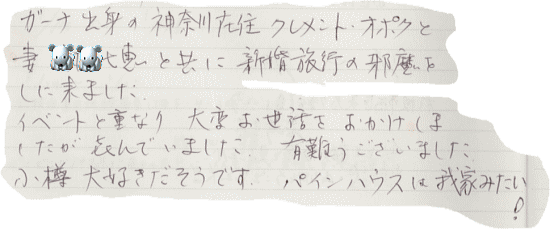 ガーナ出身の神奈川在住クレメント・オポクと
妻 恵と共に新婚旅行の邪魔を
しに来ました.
イベントと重なり 大変お世話をおかけしま
したが 喜んでいました. 有難うございました.
小樽 大好きだそうです. パインハウスは我家みたい
!